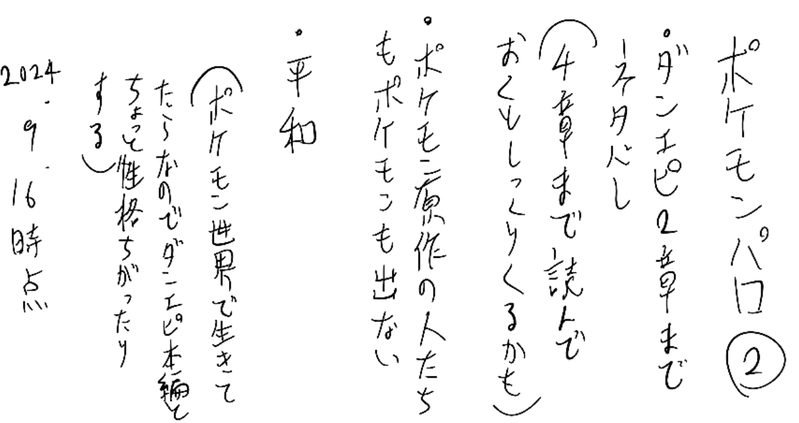 ポケモンパロ②
・ダンエピ2章まで
ネタバレ
(4章まで読んで
おくとしっくりくるかも)
・ポケモン原作の人たち
もポケモンも出ない
・平和
(ポケモン世界で生きて
たらなのでダンエピ本編と
ちょっと性格ちがったり
する)
2024.9.16時点